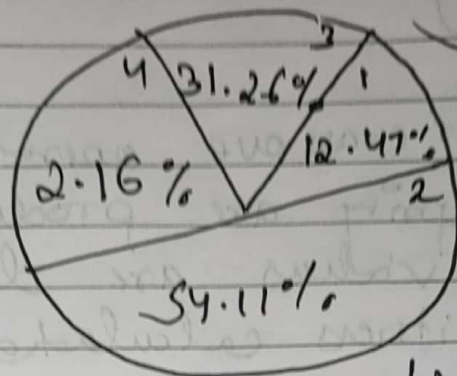 3
4 31.26% 1
12.47%
2.16% 2
54.11%